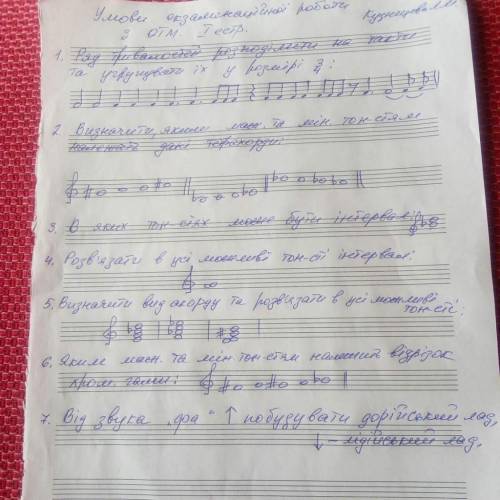 Умови екзаменаційної роботи
з ОТМ. I сестр.
1. Ряд тривалостей розподілити на такти
та угрупувати їх у розмірі 3/4:
2. Визначити, яким маж. та мін. тон-стям
належать дані тетрахорди:
3. В яких тон-стях може бути інтервал:
4. Розв'язати в усі можливі тон-сті інтервал:
5. Визначити вид акорду та розв'язати в усі можливі
тон-сті:
6. Яким маж. та мін тон-стям належить відрізок
хром. гами:
7. Від звука „фа" ↑ побудувати дорійський лад,
↓ - лідійський лад,